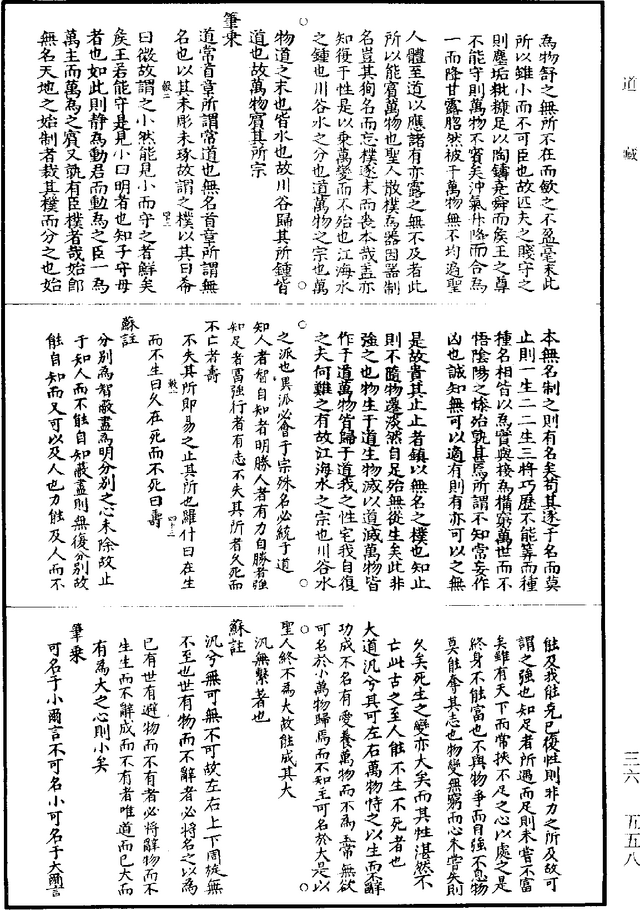 道藏
為物舒之無所不在而斂之不盈毫末此
所以雖小而不可臣也故匹夫之賤守之
則塵垢粃糠足以陶鑄堯舜而侯王之尊
不能守則萬物不賓矣沖氣升降而合為
一而降甘露脗然被于萬物無不均遍聖
人體至道以應諸有亦露之無不及者此
所以能賓萬物也聖人散樸為器因器制
名豈其徇名而忘樸逐末而喪本哉蓋亦
知復于性是以乘萬變而不殆也江海水
之鍾也川谷水之分也道萬物之宗也萬
物道之末也皆水也故川谷歸其所鍾皆
道也故萬物賓其所宗
筆乘
道常首章所謂常道也無名首章所謂無
名也以其未彫未琢故謂之樸以其曰希
曰微故謂之小然能見小而守之者鮮矣
侯王若能守是見小曰明者也知子守母
者也如此則靜為動君而動為之臣一為
萬主而萬為之賓又孰有臣樸者哉始即
無名天地之始制者裁其樸而分之也始
本無名制之則有名矣苟其逐于名而莫
止則一生二二生三將巧歷不能筭而種
種名相皆以為實與接為構窮萬世而不
悟陰陽之慘殆孰甚焉所謂不知常妄作
凶也誠知無可以適有則有亦可以之無
是故貴其止止者鎮以無名之樸也知止
則不隨物遷淡然自足殆無從生矣此非
強之也物生于道生物滅以道滅萬物皆
作于道萬物皆歸于道我之性宅我自復
之夫何難之有故江海水之宗也川谷水
之派也異派必會于宗殊名必統于道
知人者智自知者明勝人者有力自勝者強
知足者富強行者有志不失其所者久死而
不亡者壽
不失其所即易之止其所也羅什曰在生
而不生曰久在死而不死曰壽
蘇註
分別為智蔽盡為明分別之心未除故止
于知人而不能自知蔽盡則無復分別故
能自知而又可以及人也力能及人而不
能及我能克已復性則非力之所及故可
謂之強也知足者所遇而足則未嘗不富
矣雖有天下而常挾不足之心以處之是
終身不能富也不與物爭而自強不息物
莫能奪其志也物變無窮而心未嘗失則
久矣死生之變亦大矣而其性湛然不
亡此古之至人能不生不死者也
大道汎兮其可左右萬物恃之以生而不辭
功成不名有愛養萬物而不為主常無欲
可名於小萬物歸焉而不知主可名於大是以
聖人終不為大故能成其大
汎無繫著也
蘇註
汎兮無可無不可故左右上下周旋無
不至也世有物而不辭者必將名之以為
已有世有避物而不有者必將辭物而不
生生而不辭成而不有者唯道而已大而
有為大之心則小矣
筆乘
可名于小爾言不可名小可名于大爾言
三六 五五八